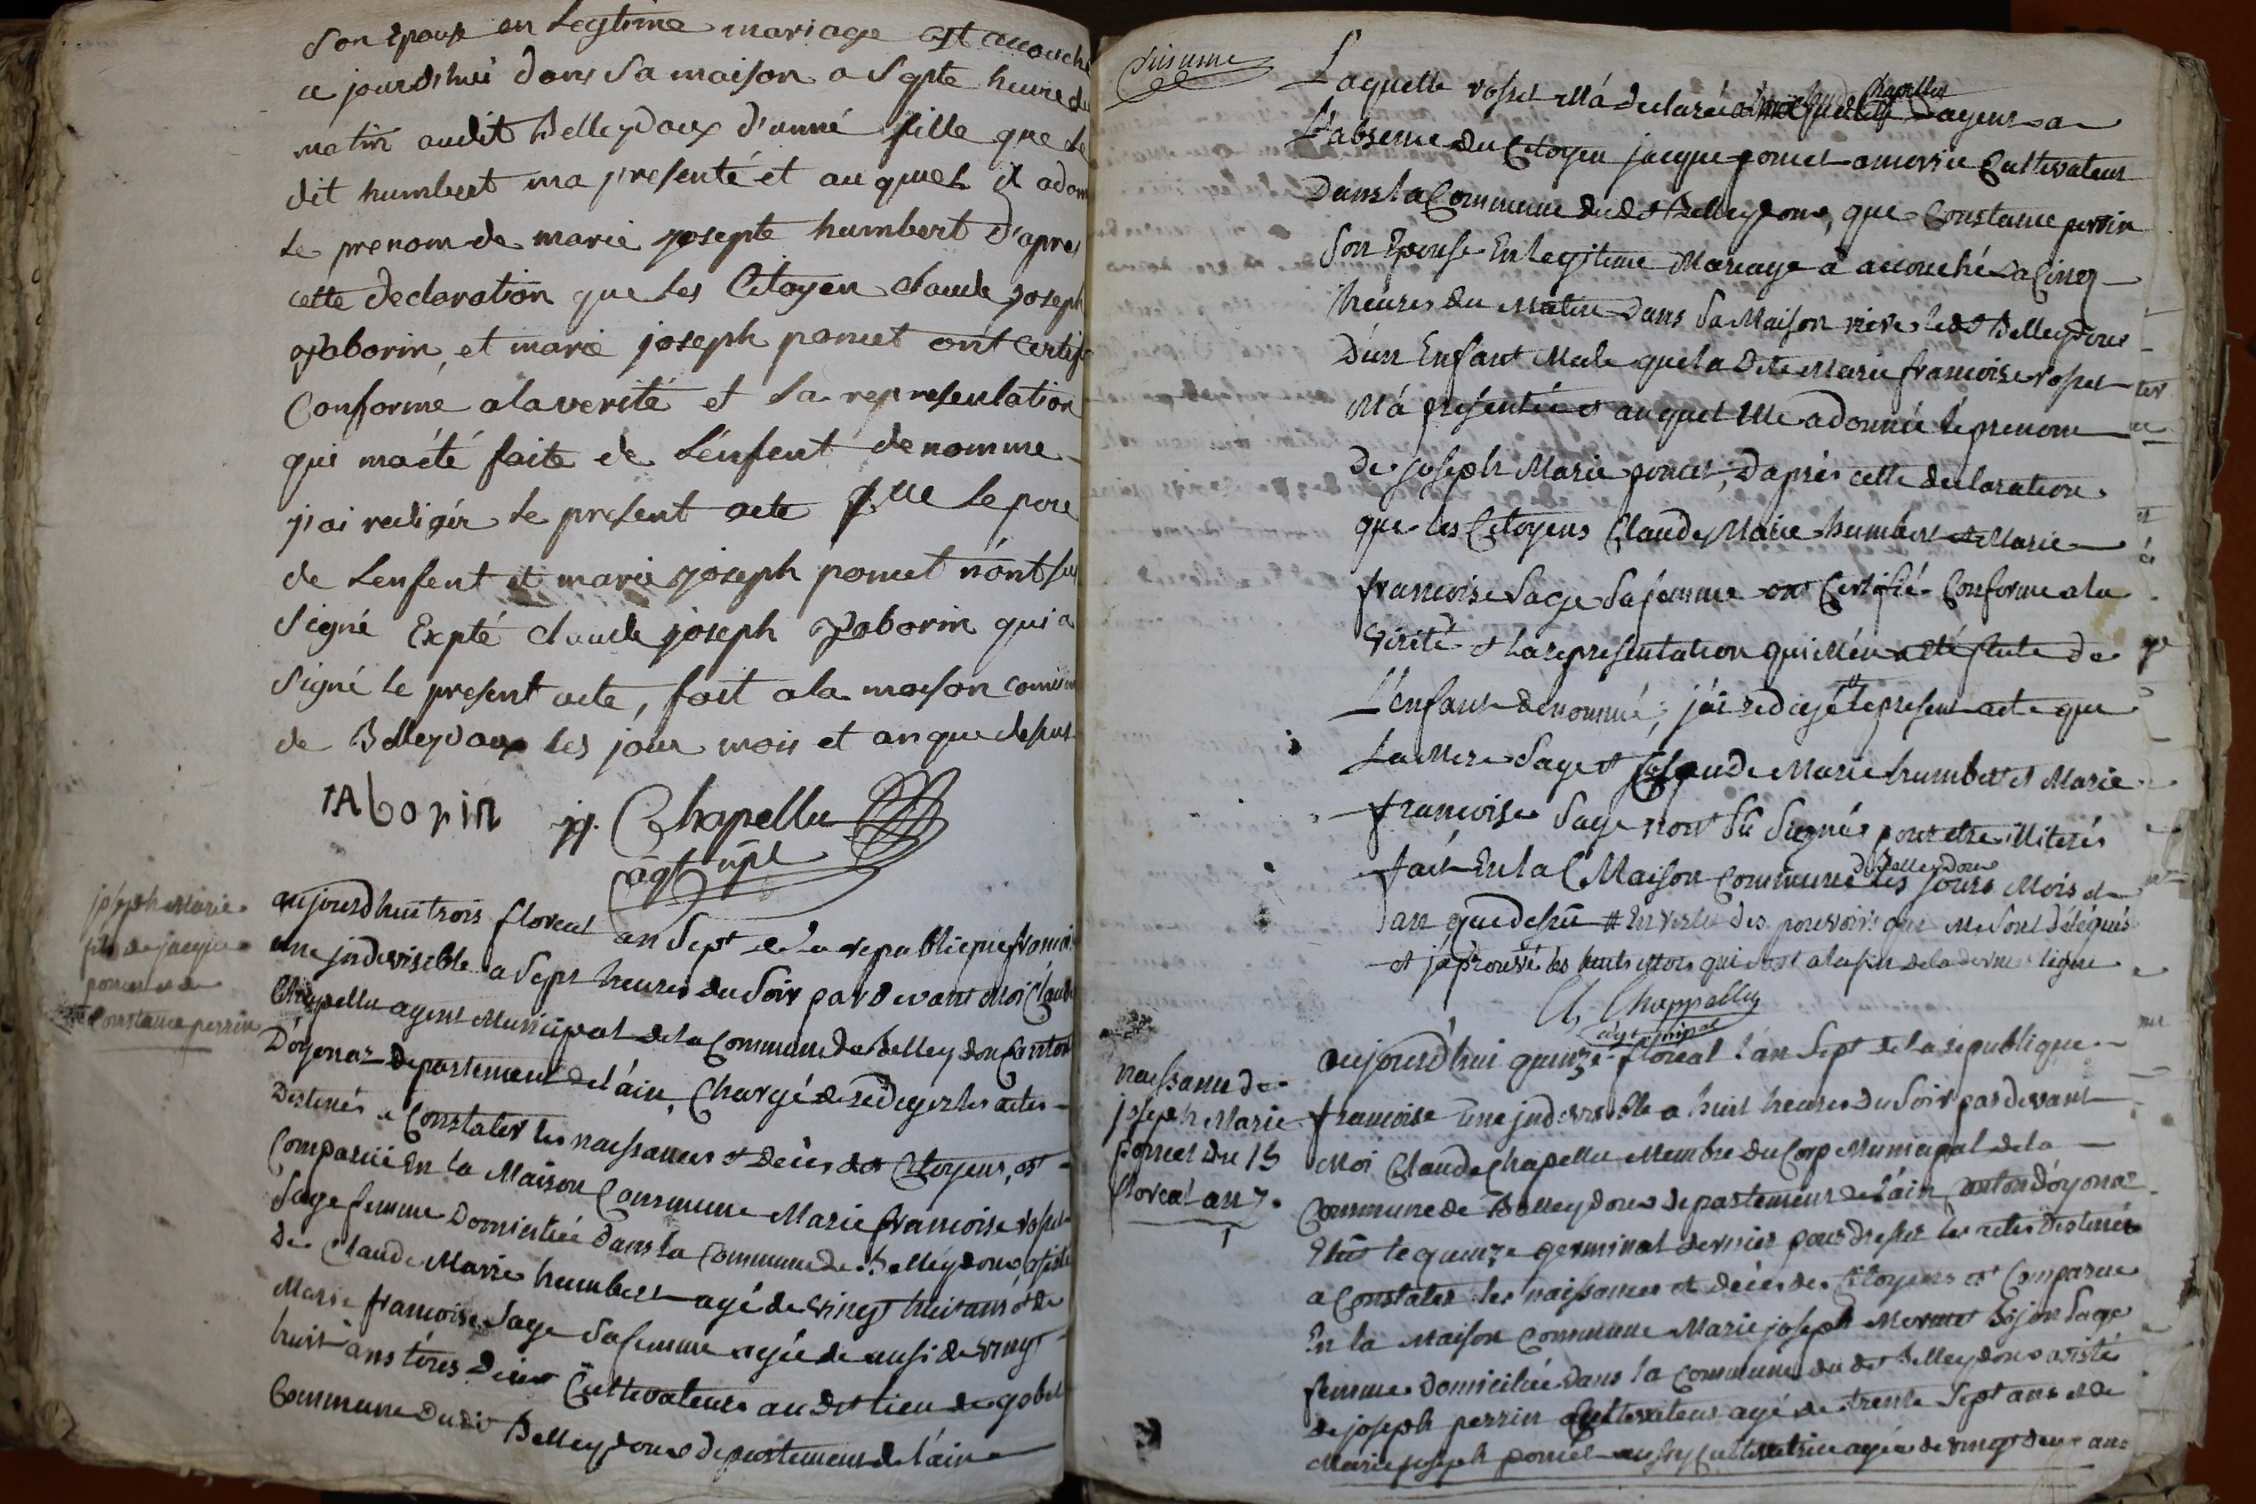 son Epouse en Legtime mariage est accouché
a jourdshui dans sa maison a septe heure du
matin audit Belleydoux d'unne fille que le
dit humbert ma presenté et au quel il adon
le prenom de marie josepte humbert d'apres
cette declaration que les Citoyen claude joseph
Taborin, et marie joseph poncet ont certifi
Conforme alaverité et la representation
qui maété faite de L'enfent denomme
j'ai redigér le present acte que le pere
de Lenfent et marie joseph poncet n'ont su
signé Expté claude joseph Taborin qui a
signé le present acte, fait a la maison comun
de Belleydoux les jour mois et an que desus
TAborin jj. Chapellu
agt mpl
joseph Marie
fils de jacque
poncet et de
Constance perrin
aujourdhui trois floreal an Sept de la republique francoi
une jndevisible a Sept heures du Soir pardevant Moi Claude
Chapellu agent Municipal de la Commune de Belleydou Canton
D'oyonaz departement de l'ain, Chargé de redeger les actes
Destinés a Constater les naissances et Décès des Citoyens, est
Comparüe En la Maison Commune Marie francoise rosset
Sage femme Domiciliée Dans la Commune de Belleydoux, asisté
de Claude Marie humbert agé de vingt huit ans et de
Marie francoise Sage Sa femme agée de ausi de vingt
huit ans tous Deux Cultivateurs au dt lieu de gobet
Commune Dudit Belleydoux departement de l'ain
suivanne
Laquelle rosset M'a declarée Chapellu D'agent a
L'absence du Citoyen jacque poncet Cultivateur
Dans la Commune dudt Belleydoux, que Constance perrin
Son Epouse En legitime Mariage a accouché a Cinq
heures du Matin Dans Sa Maison riere ledt Belleydoux
D'un Enfant Male que la dite Marie francoise rosset
M'a presentée et auquel Elle a donnée le prenom
De joseph Marie poncet, D'après cette declaration
que les Citoyens Claude Marie humbert et Marie
francoise Sage Sa femme ont Certifié Conforme a la
vérité et La representation qui M'en a été faite de
L'enfant denommé, j'ai redigé le present acte que
La Mere Sage et Claude Marie humbert et Marie
francoise Sage n'ont Sû Signér pour etre illiterés
fait En la Maison Commune de Belleydoux les jours Mois et
an que dessu # En vertu des pouvoirs que me sont délégués
et japrouve les huits mots qui sont a la fin de la derniere ligne
Cl. Chappellu
agt mnipal
naissance de
joseph Marie
poncet Du 15
floreal an 7.
aujourd'hui quinze floreal l'an Sept de la republique
francoise une jndevisible a huit heures du Soir pardevant
Moi Claude Chapellu Membre du Corp Municipal de la
Commune de Belleydoux departement de l'ain Canton d'oyonaz
Elu le quinze germinal dernier pour dresser les actes destinés
a Constater les naissances et décès des Citoyens est Comparue
En la Maison Commune Marie joseph Mermet Bijon Sage
femme domiciliée Dans la Commune du dt Belleydoux asisté
de joseph perrin Cultivateur agé de trente Sept ans et de
Marie joseph poncet aussy Cultivatrice agée de vingt deux ans